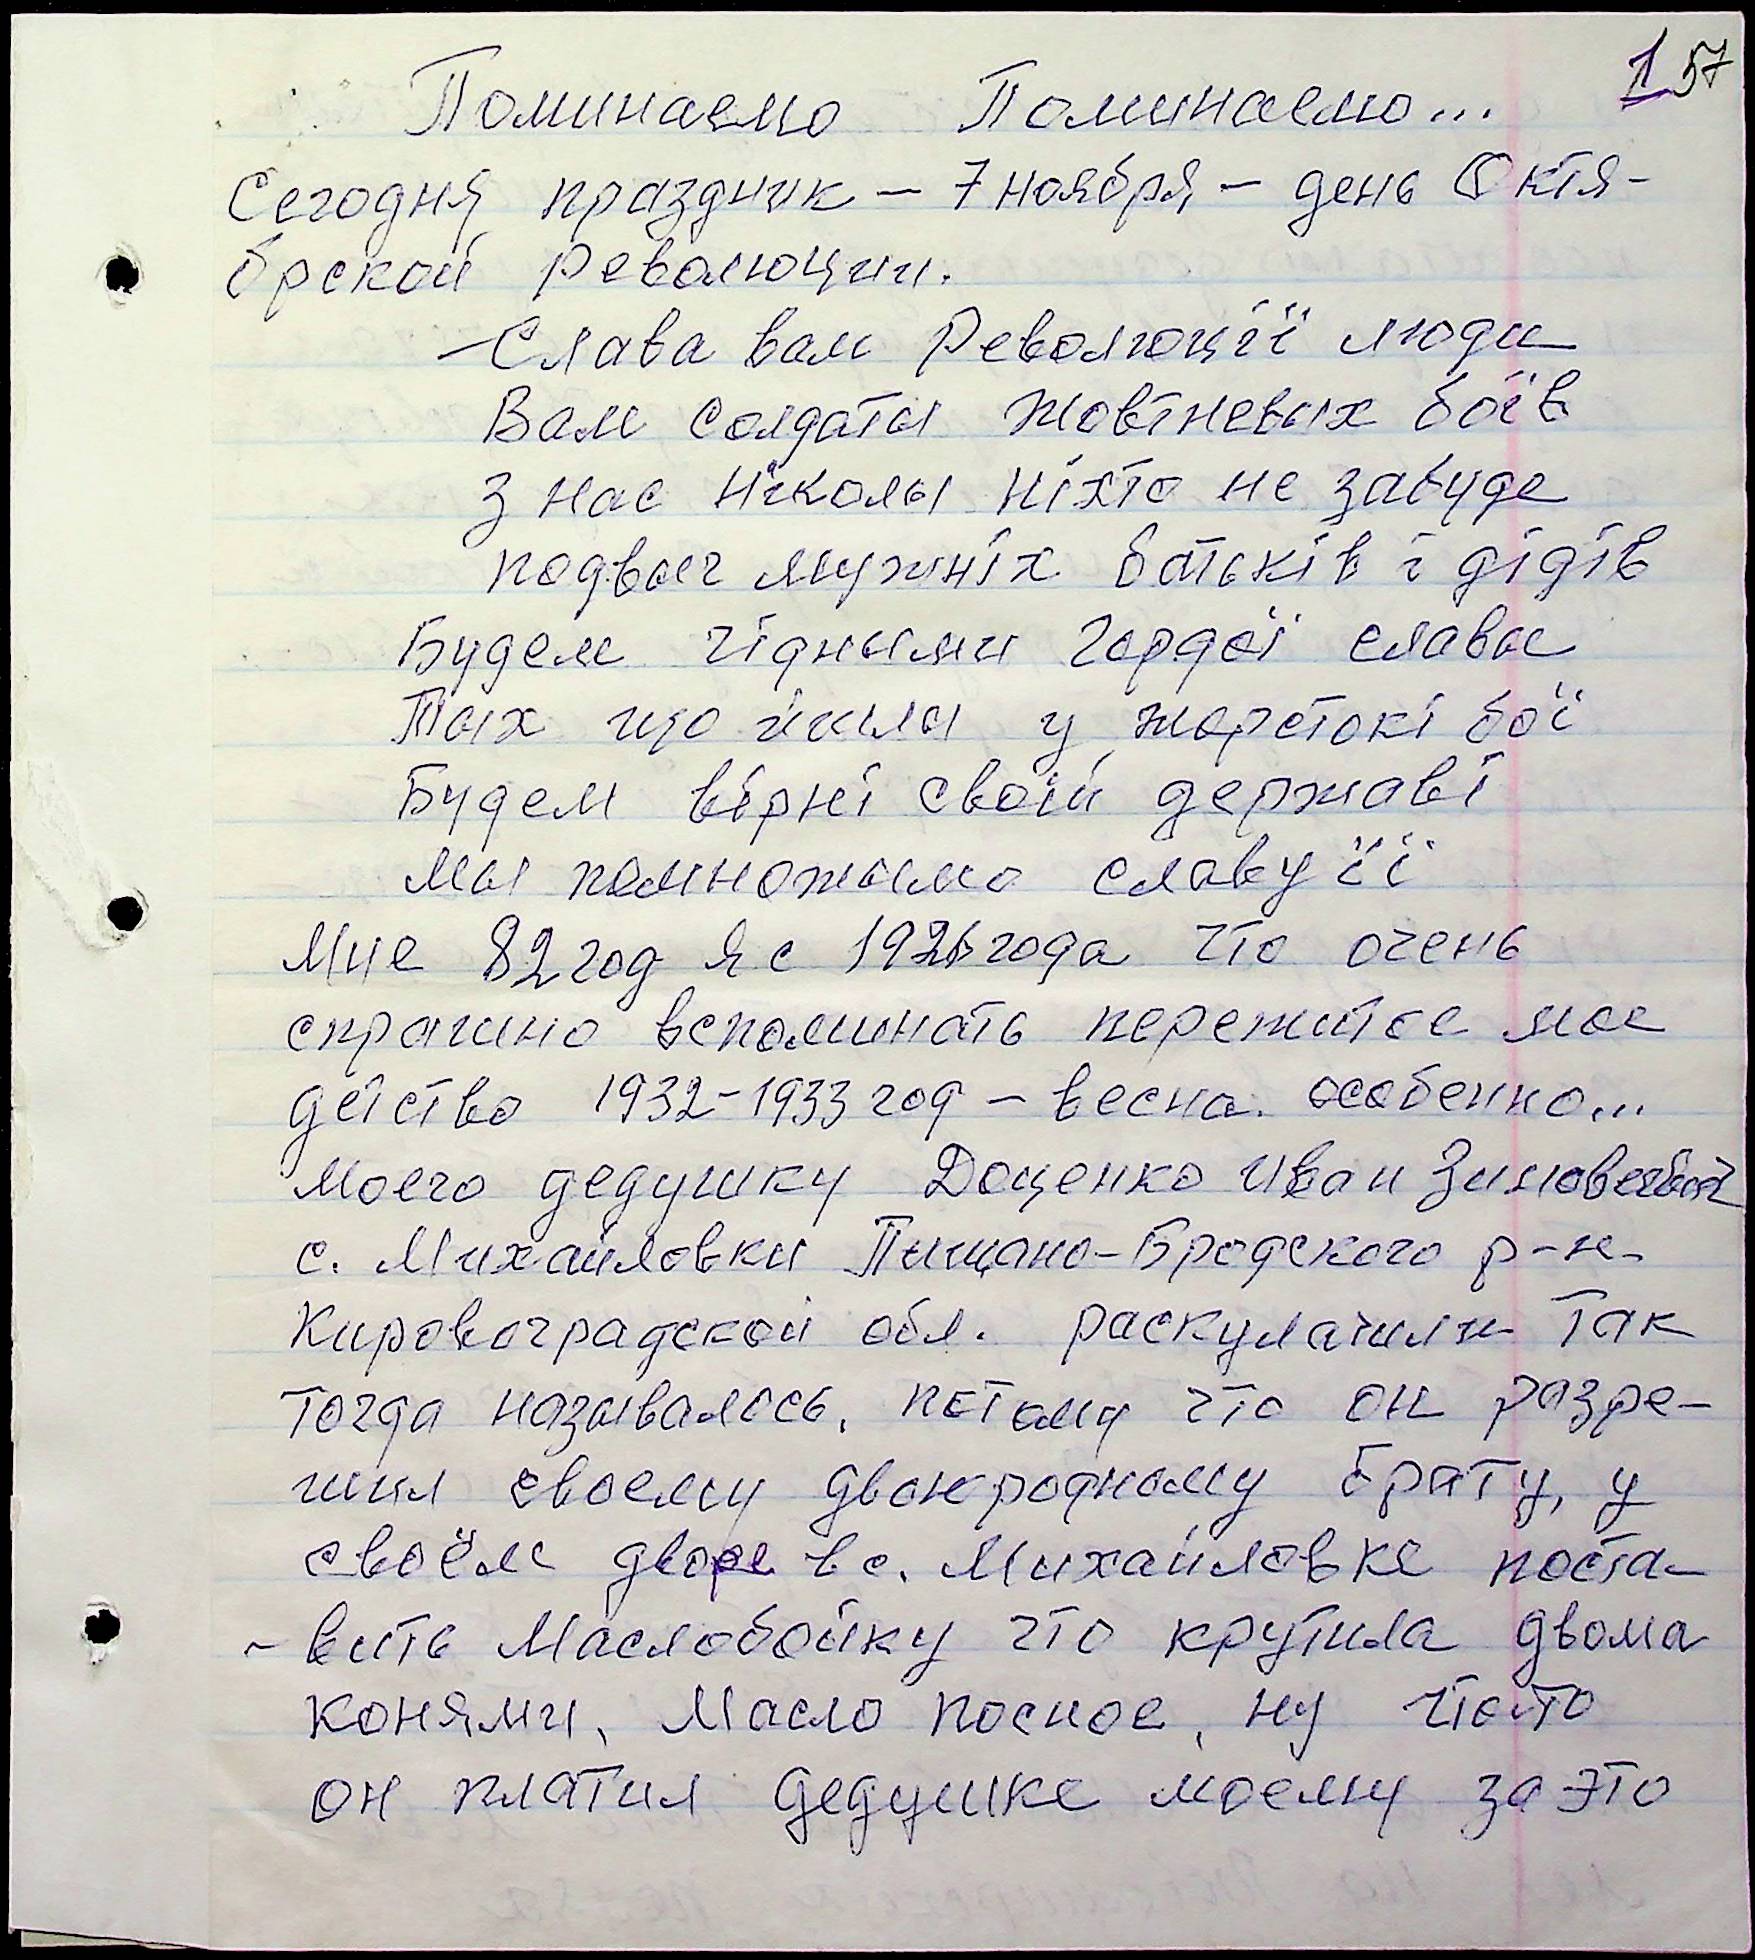 1 57
Поминаемо Поминаемо...
Сегодня праздник - 7 ноября - день Октя-
брской Революции.
- Слава вам Революціїї люди
Вам солдаты жовтневых боїв
З нас ніколы ніхто не забуде
подвыг мужніх батьків і дідів
Будем гідными гордої славы
Тых що йшлы у жорстокі бої
Будем вірні своїй державі
Мы помножымо славу її
Мне 82 год я с 1926 года что очень
страшно вспоминать пережитое мое
детство 1932-1933 год - весна. особенно...
Моего дедушку Доценко Иван Зиновеевич
с. Михайловки Пищано-Бродского р-н-
Кировоградской обл. раскулачили так
тогда называлось. потому что он разре-
шил своему двоюродному брату, у
своём дворе в с. Михайловке поста-
- вить Маслобойку что крутила двома
конями, Масло посное, ну что-то
он платил дедушке моему за это